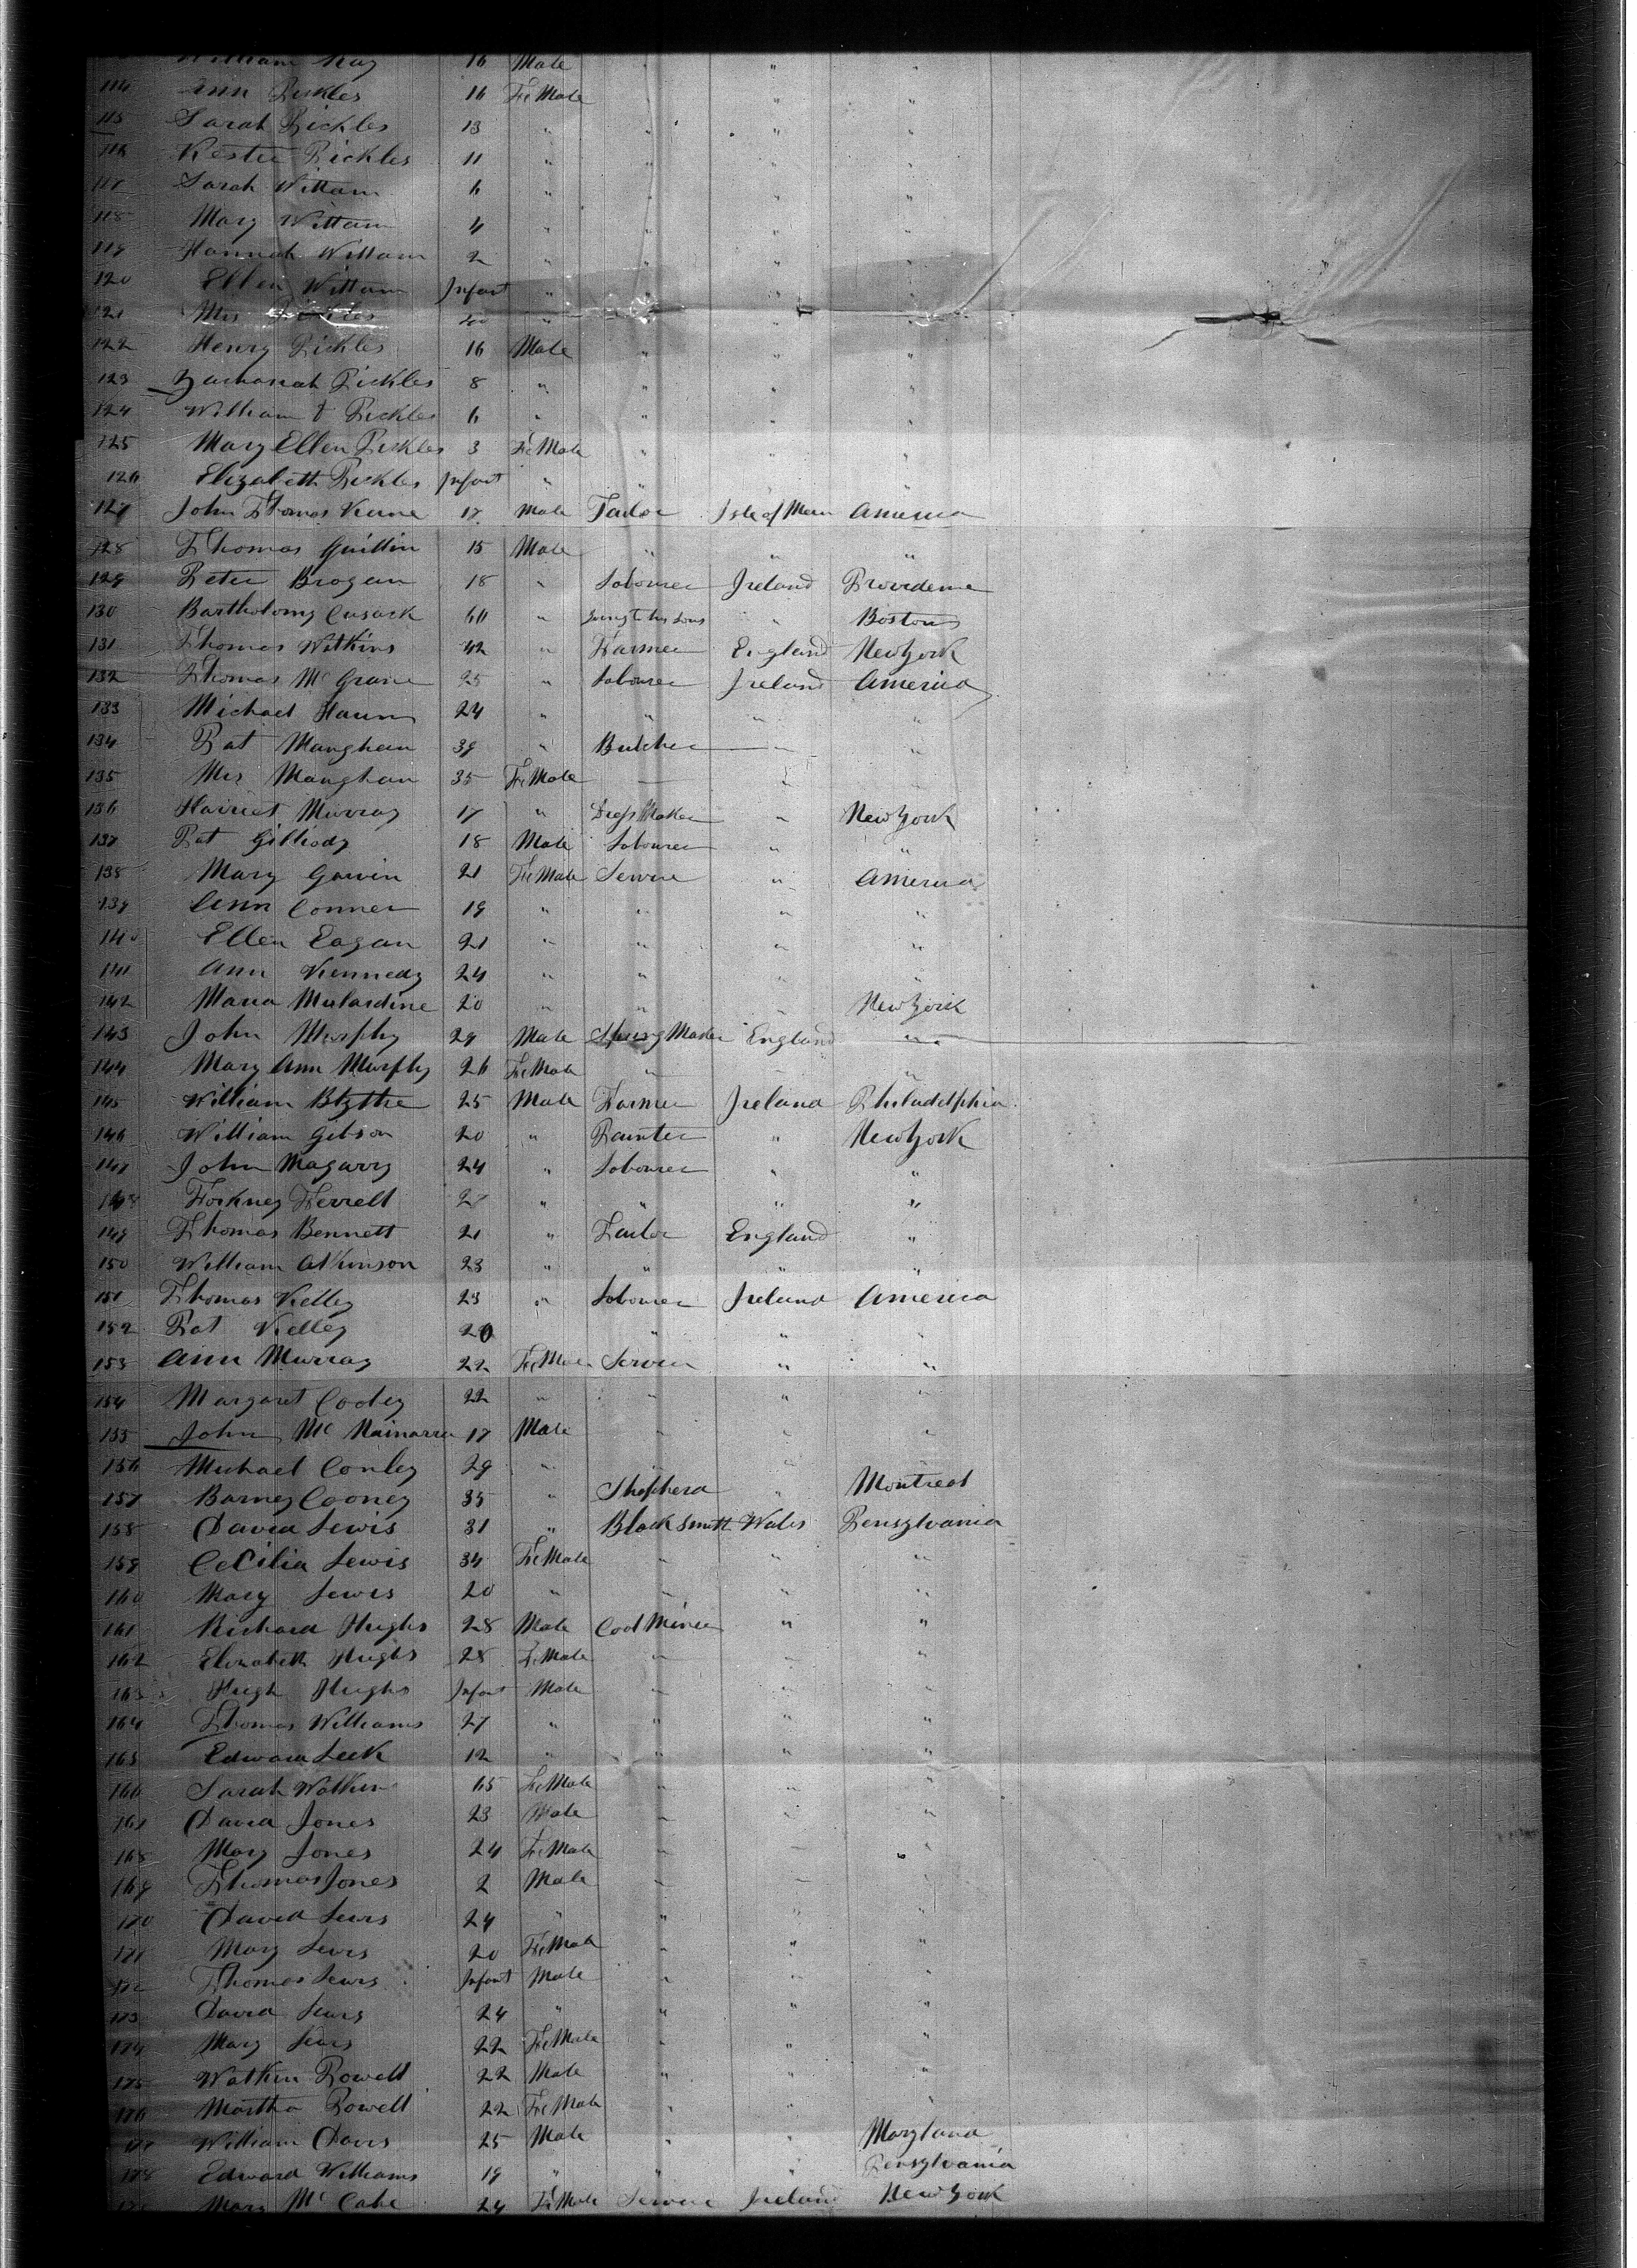 William Kay 16 Male " " "
114 Ann Pickles 16 FeMale " " "
115 Sarah Pickles 13 " " " "
116 Kester Pickles 11 " " " "
117 Sarah Wittam 6 " " " "
118 Mary Wittam 4 " " " "
119 Hannah Wittam 2 " " " "
120 Ellen Wittam Infant " " " "
121 Mrs Pickles 40 " " "
122 Henry Pickles 16 Male " " "
123 Zachariah Pickles 8 " " " "
124 William Pickles 6 " " " "
125 Mary Ellen Pickles 3 FeMale " " "
126 Elizabeth Pickles Infant " " " "
127 John Thomas Keine 17 Male Tailor Isle of Man America
128 Thomas Quillin 15 Male " " "
129 Peter Brogan 18 " Labourer Ireland Providence
130 Bartholomy Cusack 60 " Going to his sons " Boston
131 Thomas Watkins 42 " Farmer England New York
132 Thomas McGrane 25 " Labourer Ireland America
133 Michael 24 " " " "
134 Pat Manghan 39 " Butcher " "
135 Mrs Manghan 35 FeMale " "
136 Harriet Murray 17 " Dress Maker " New York
137 Pat Gilliody 18 Male Labourer " "
138 Mary Gavin 21 FeMale Server " America
139 Ann Conner 19 " " " "
140 Ellen Eagan 21 " " " "
141 Ann Kennedy 24 " " " "
142 Maria Mulardine 20 " " " New York
143 John Murphy 29 Male Spring Maker England "
144 Mary Ann Murphy 26 FeMale " " "
145 William Blythe 25 Male Farmer Ireland Philadelphia
146 William Gibson 20 " Painter " New York
147 John Magarry 24 " Labourer " "
148 Forkney Ferrell 27 " " " "
149 Thomas Bennett 21 " Tailor England "
150 William Atkinson 23 " " " "
151 Thomas Kelley 23 " Labourer Ireland America
152 Pat Kelley 20 " " "
153 Ann Murray 22 FeMale Server " "
154 Margaret Cooley 22 " " " "
155 John McNamarra 17 Male " " "
156 Michael Conley 29 " "
157 Barney Cooney 35 " Shepherd " Montreal
158 David Lewis 31 " Black Smith Wales Pensylvania
159 Cecilia Lewis 34 FeMale " " "
160 Mary Lewis 20 " " " "
161 Richard Hughs 28 Male Coal Miner " "
162 Elizabeth Hughs 28 FeMale " " "
163 Hugh Hughs Infant Male " " "
164 Thomas Williams 27 " " " "
165 Edward Leek 12 " " " "
166 Sarah Watkins 65 FeMale " " "
167 David Jones 23 Male " " "
168 Mary Jones 24 FeMale " " "
169 Thomas Jones 2 Male " " "
170 David Lewis 24 " " " "
171 Mary Lewis 20 FeMale " " "
172 Thomas Lewis Infant Male " " "
173 David Lewis 24 " " " "
174 Mary Lewis 22 FeMale " " "
175 Watkin Powell 22 Male " " "
176 Martha Powell 22 FeMale " " "
177 William Davis 25 Male " " Maryland
178 Edward Williams 19 " " " Pensylvania
Mary McCabe 24 FeMale Server Ireland New York